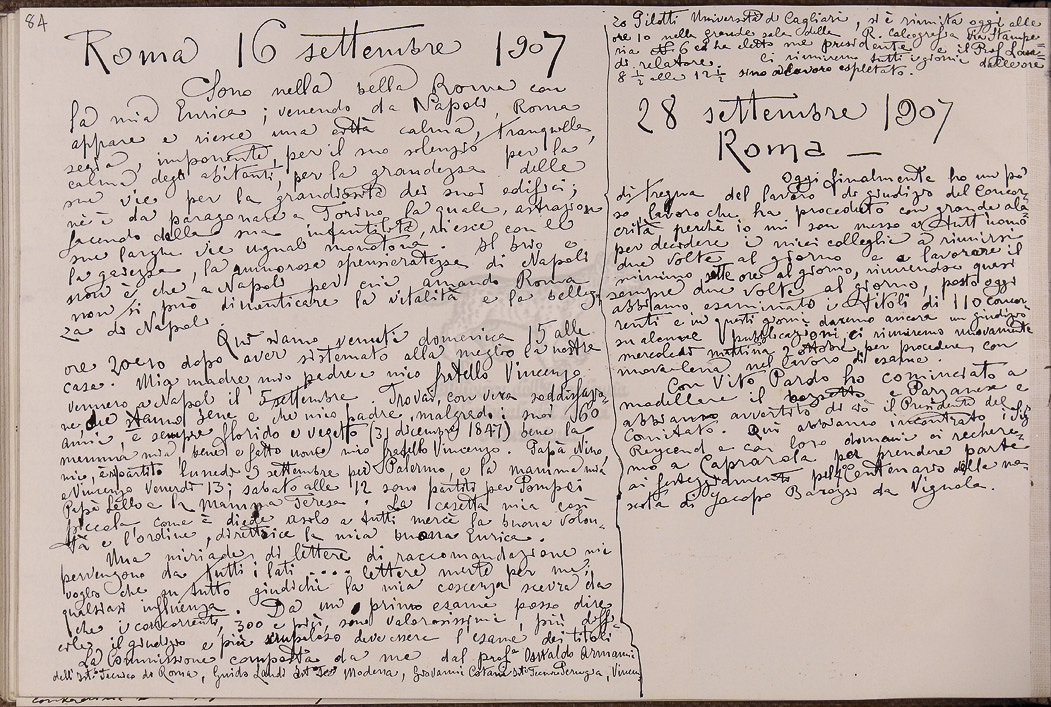 84
Roma 16 settembre 1907
Sono nella bella Roma con
la mia Enrica; venendo da Napoli, Roma
appare e riesce una città calma, tranquilla,
seria, imponente, per il suo silenzio per la
calma degli abitanti, per la grandezza delle
sue vie per la grandiosità dei suoi edifici;
nè è da paragonare a Torino la quale, astrazion
facendo della sua infantilità, riesce con le
sue larghe vie uguali monotona. Il brio e
la gaiezza, la rumorosa spensieratezza di Napoli
non è che a Napoli per cui amando Roma
non si può dimenticare la vitalità e la bellez-
za di Napoli.
Qui siamo venuti domenica 15 alle
ore 20 e 10 dopo aver sistemato alla meglio la nostra
casa. Mia madre mio padre e mio fratello Vincenzo
vennero a Napoli il 5 settembre. Trovai con vera soddisfazio-
ne che stanno bene e che mio padre, malgrado i suoi 60
anni, è sempre florido e vegeto (31 dicembre 1847) bene la
mamma mia, bene e fatto uomo mio fratello Vincenzo. Papà Nino,
mio, è partito lunedì 9 settembre per Palermo, e la mamma mia
e Vincenzo Venerdì 13; sabato alle 12 sono partiti per Pompei
Papà Lello e la mamma Teresa. La casetta mia così
piccola come è diede asilo a tutti mercè la buona volon-
tà e l'ordine, direttrice la mia buona Enrica.
Una miriade di lettere di raccomandazione mi
pervengono da tutti i lati .... lettere morte per me;
voglio che su tutto giudichi la mia coscenza scevra da
qualsiasi influenza. Da un primo esame posso dire
che i concorrenti, 300 e più, sono valorosissimi, più diffi-
cile il giudizio e più scrupoloso deve essere l'esame dei titoli
La Commissione composta da me dal profr Oswaldo Armanni
dell'Isto Tecnico di Roma, Guido Landi Modena, Giovanni Cotani Isti Tecnico Perugia, Vincen
zo Pilotti Università di Cagliari, si è riunita oggi alle
ore 10 nella grande sala della R. Calcografia Via Stampe-
ria No 6 ed ha eletto me presidente e il Prof Landi
di relatore. Ci riuniremo tutti i giorni dalle ore
8 ½ alle 12 ½ sino a lavoro espletato.
28 settembre 1907
Roma —
Oggi finalmente ho un pò
di tregua del lavoro di giudizio del Concor-
so, lavoro che ha proceduto con grande ala-
crità perchè io mi son messo a tutt'uomo
per decidere i miei colleghi a riunirsi
due volte al giorno e a lavorare il
minimo sette ore al giorno, riunendosi quasi
sempre due volte al giorno, posto oggi
abbiamo esaminato i titoli di 110 concor-
renti e in questi giorni daremo ancora un giudizio
su alcune pubblicazioni, ci riuniremo nuovamente
mercoledì mattina 2 ottobre per procedere con
nova lena nel lavoro di esame.
Con Vito Pardo ho cominciato a
modellare il bozzetto e Parzanese e
abbiamo avvertito di ciò il Presidente del
Comitato. Qui abbiamo incontrato i
Reycend e con loro domani ci rechere-
mo a Caprarola per prendere parte
ai festeggiamenti pel Centenario della na-
scita di Jacopo Barozzi da Vignola.